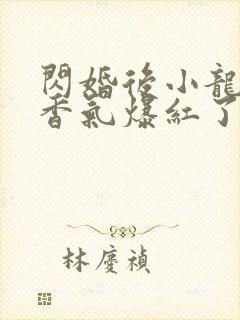 閃婚後小龍
香氣爆紅了
林慶禎